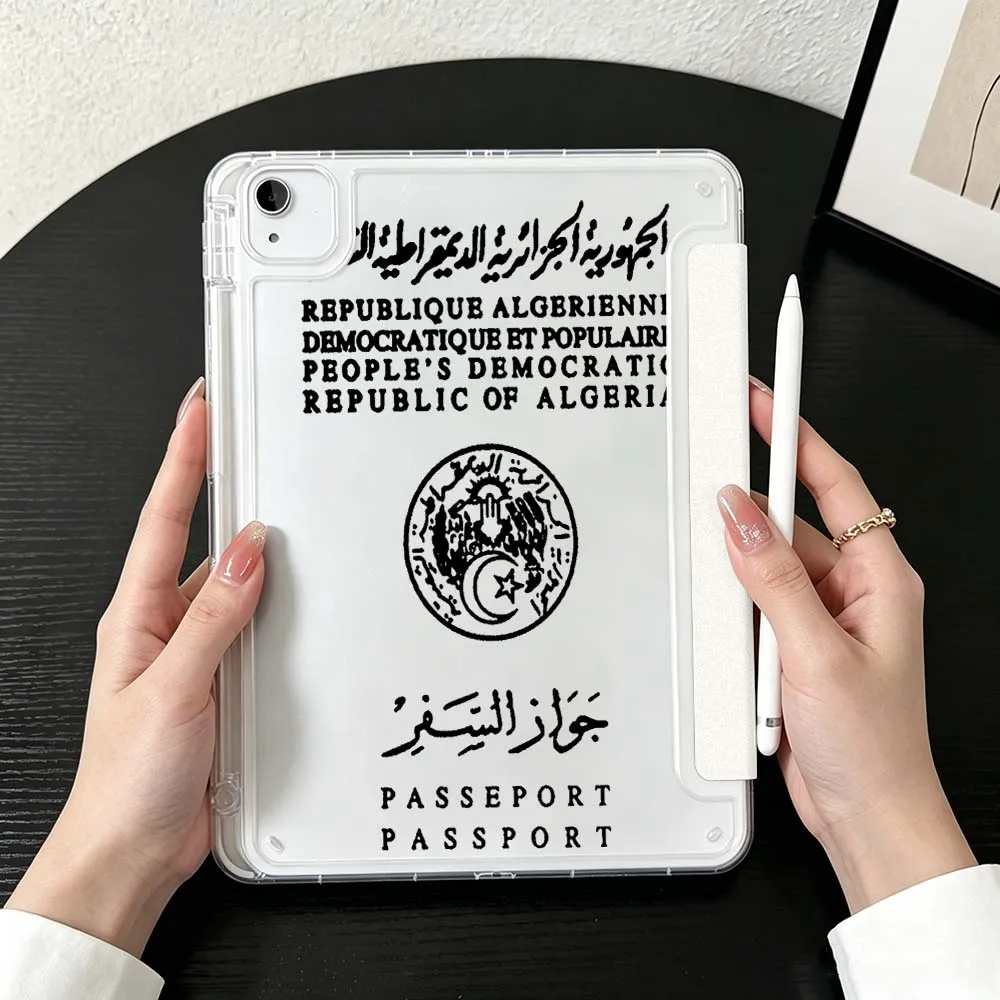 الجمهورية الجزائرية الديمقراطية ال
REPUBLIQUE ALGERIENN
DEMOCRATIQUE ET POPULAIR
PEOPLE'S DEMOCRATIC
REPUBLIC OF ALGERIA
جَوَاز السَّفَرْ
PASSEPORT
PASSPORT